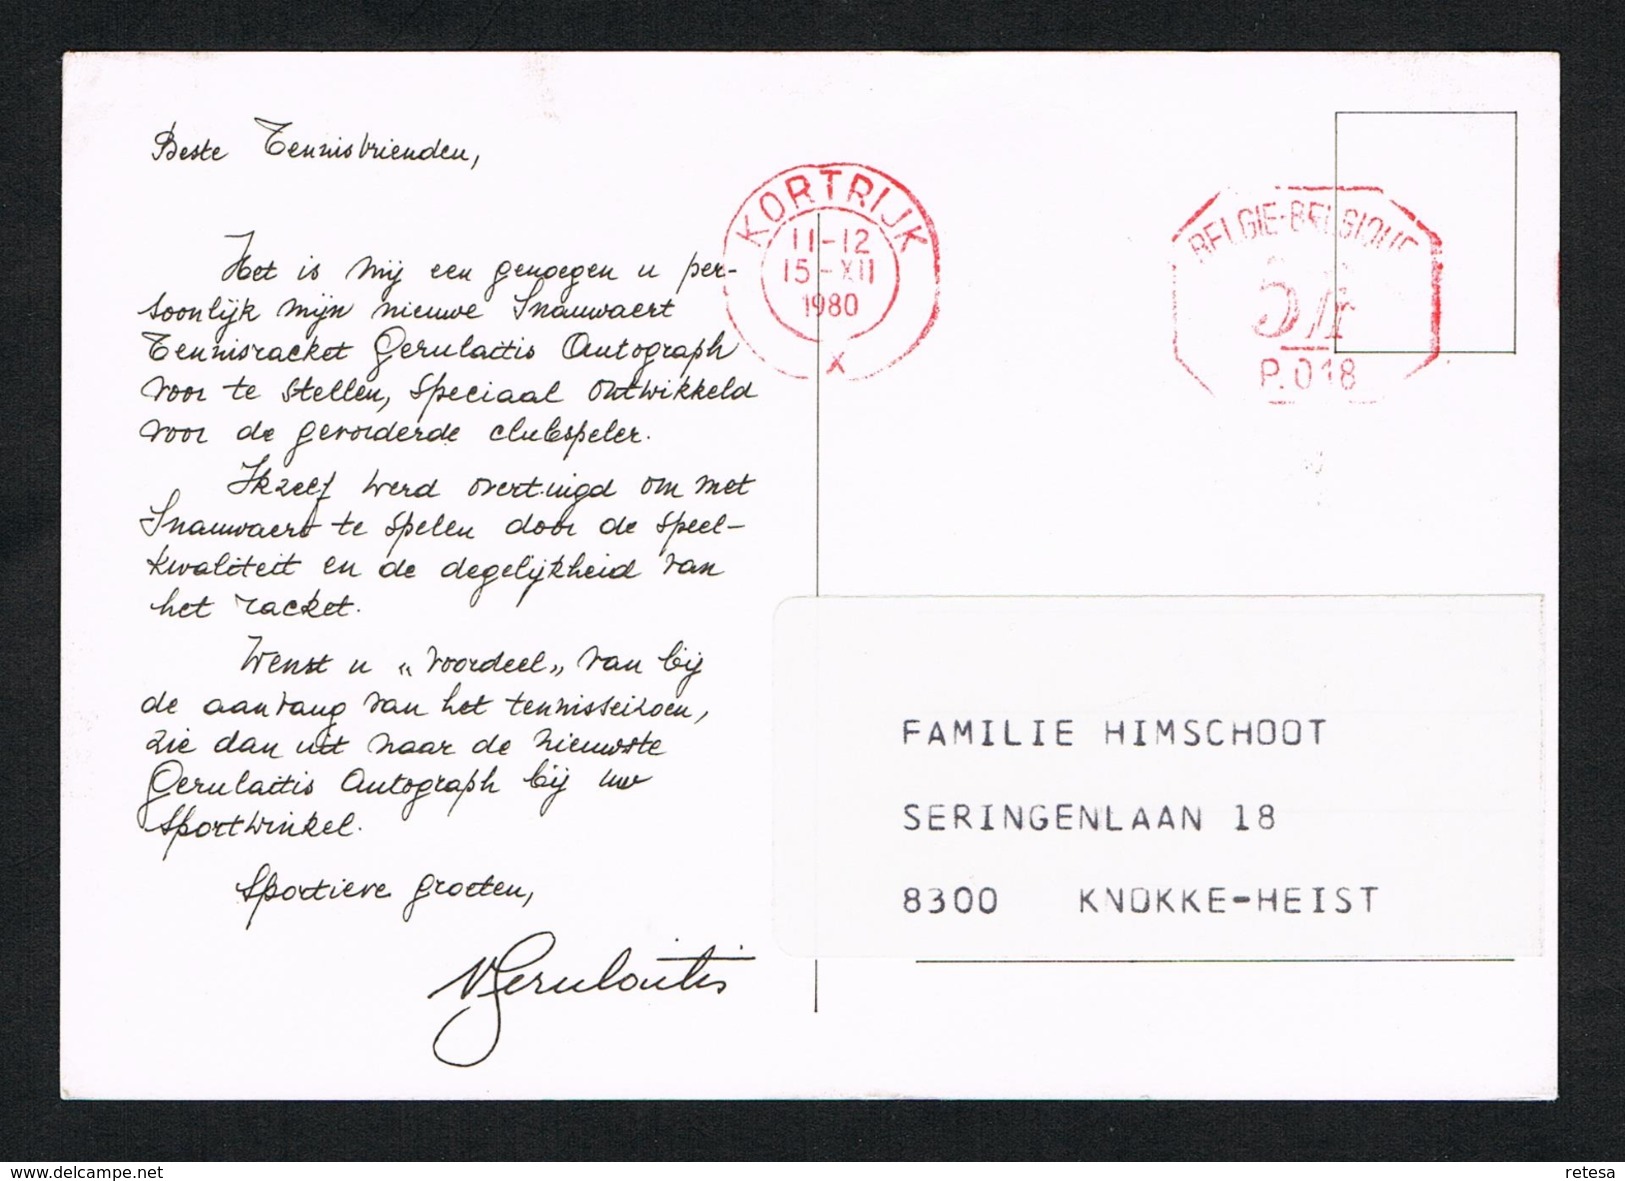 Beste Tennisvrienden,
Het is mij een genoegen u per-
soonlijk mijn nieuwe Snauwaert
Tennisracket Gerulaitis Autograph
voor te stellen, speciaal ontwikkeld
voor de gevorderde clubspeler.
Ikzelf werd overtuigd om met
Snauwaert te spelen door de speel-
kwaliteit en de degelijkheid van
het racket.
Wenst u „voordeel„ van bij
de aanvang van het tennisseizoen,
zie dan uit naar de nieuwste
Gerulaitis Autograph bij uw
Sportwinkel.
Sportieve groeten,
VGerulaitis
KORTRIJK
11-12
15-XII
1980
X
BELGIE-BELGIQUE
P.018
FAMILIE HIMSCHOOT
SERINGENLAAN 18
8300 KNOKKE-HEIST
www.delcampe.net
retesa